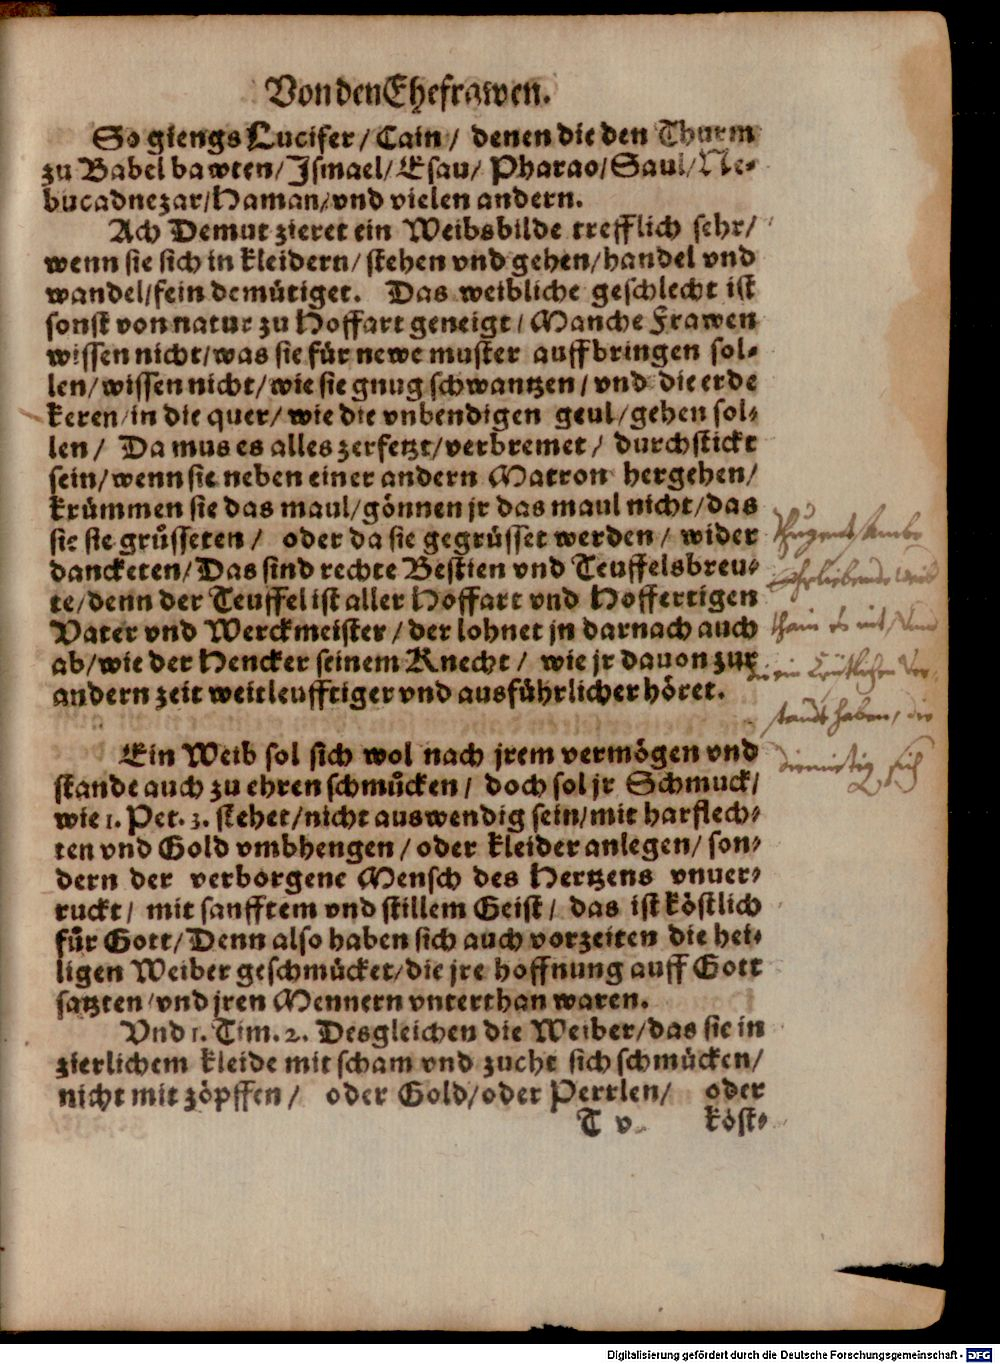 Von den Ehefrawen.
So giengs Lucifer/ Cain/ denen die den Thurm
zu Babel bawten/ Ismael/ Esau/ Pharao/ Saul/ Ne-
bucadnezar/ Haman/ vnd vielen andern.
Ach Demut zieret ein Weibsbilde trefflich sehr/
wenn sie sich in kleidern/ stehen vnd gehen/ handel vnd
wandel/ fein demütiget. Das weibliche geschlecht ist
sonst von natur zu Hoffart geneigt/ Manche Frawen
wissen nicht/ was sie für newe muster auffbringen sol-
len/ wissen nicht/ wie sie gnug schwantzen/ vnd die erde
keren/ in die quer/ wie die vnbendigen geul/ gehen sol-
len/ Da mus es alles zerfetzt/ verbremet/ durchstickt
sein/ wenn sie neben einer andern Matron hergehen/
krümmen sie das maul/ gönnen jr das maul nicht/ das
sie sie grüsseten/ oder da sie gegrüsset werden/ wider
dancketen/ Das sind rechte Bestien vnd Teuffelsbreu-
te/ denn der Teuffel ist aller Hoffart vnd Hoffertigen
Vater vnd Werckmeister/ der lohnet jn darnach auch
ab/ wie der Hencker seinem Knecht/ wie jr dauon zur
andern zeit weitleufftiger vnd ausführlicher höret.
Ein Weib sol sich wol nach jrem vermögen vnd
stande auch zu ehren schmücken/ doch sol jr Schmuck/
wie 1. Pet. 3. stehet/ nicht auswendig sein/ mit harflech-
ten vnd Gold vmbhengen/ oder kleider anlegen/ son-
dern der verborgene Mensch des Hertzens vnuer-
ruckt/ mit sanfftem vnd stillem Geist/ das ist köstlich
für Gott/ Denn also haben sich auch vorzeiten die hei-
ligen Weiber geschmücket/ die jre hoffnung auff Gott
satzten/ vnd jren Mennern vnterthan waren.
Vnd 1. Tim. 2. Desgleichen die Weiber/ das sie in
zierlichem kleide mit scham vnd zucht sich schmücken/
nicht mit zöpffen/ oder Gold/ oder Perrlen/ oder
T v köst-
Ehrliebende Weib
haben, die
sich
Digitalisierung gefördert durch die Deutsche Forschungsgemeinschaft - DFG